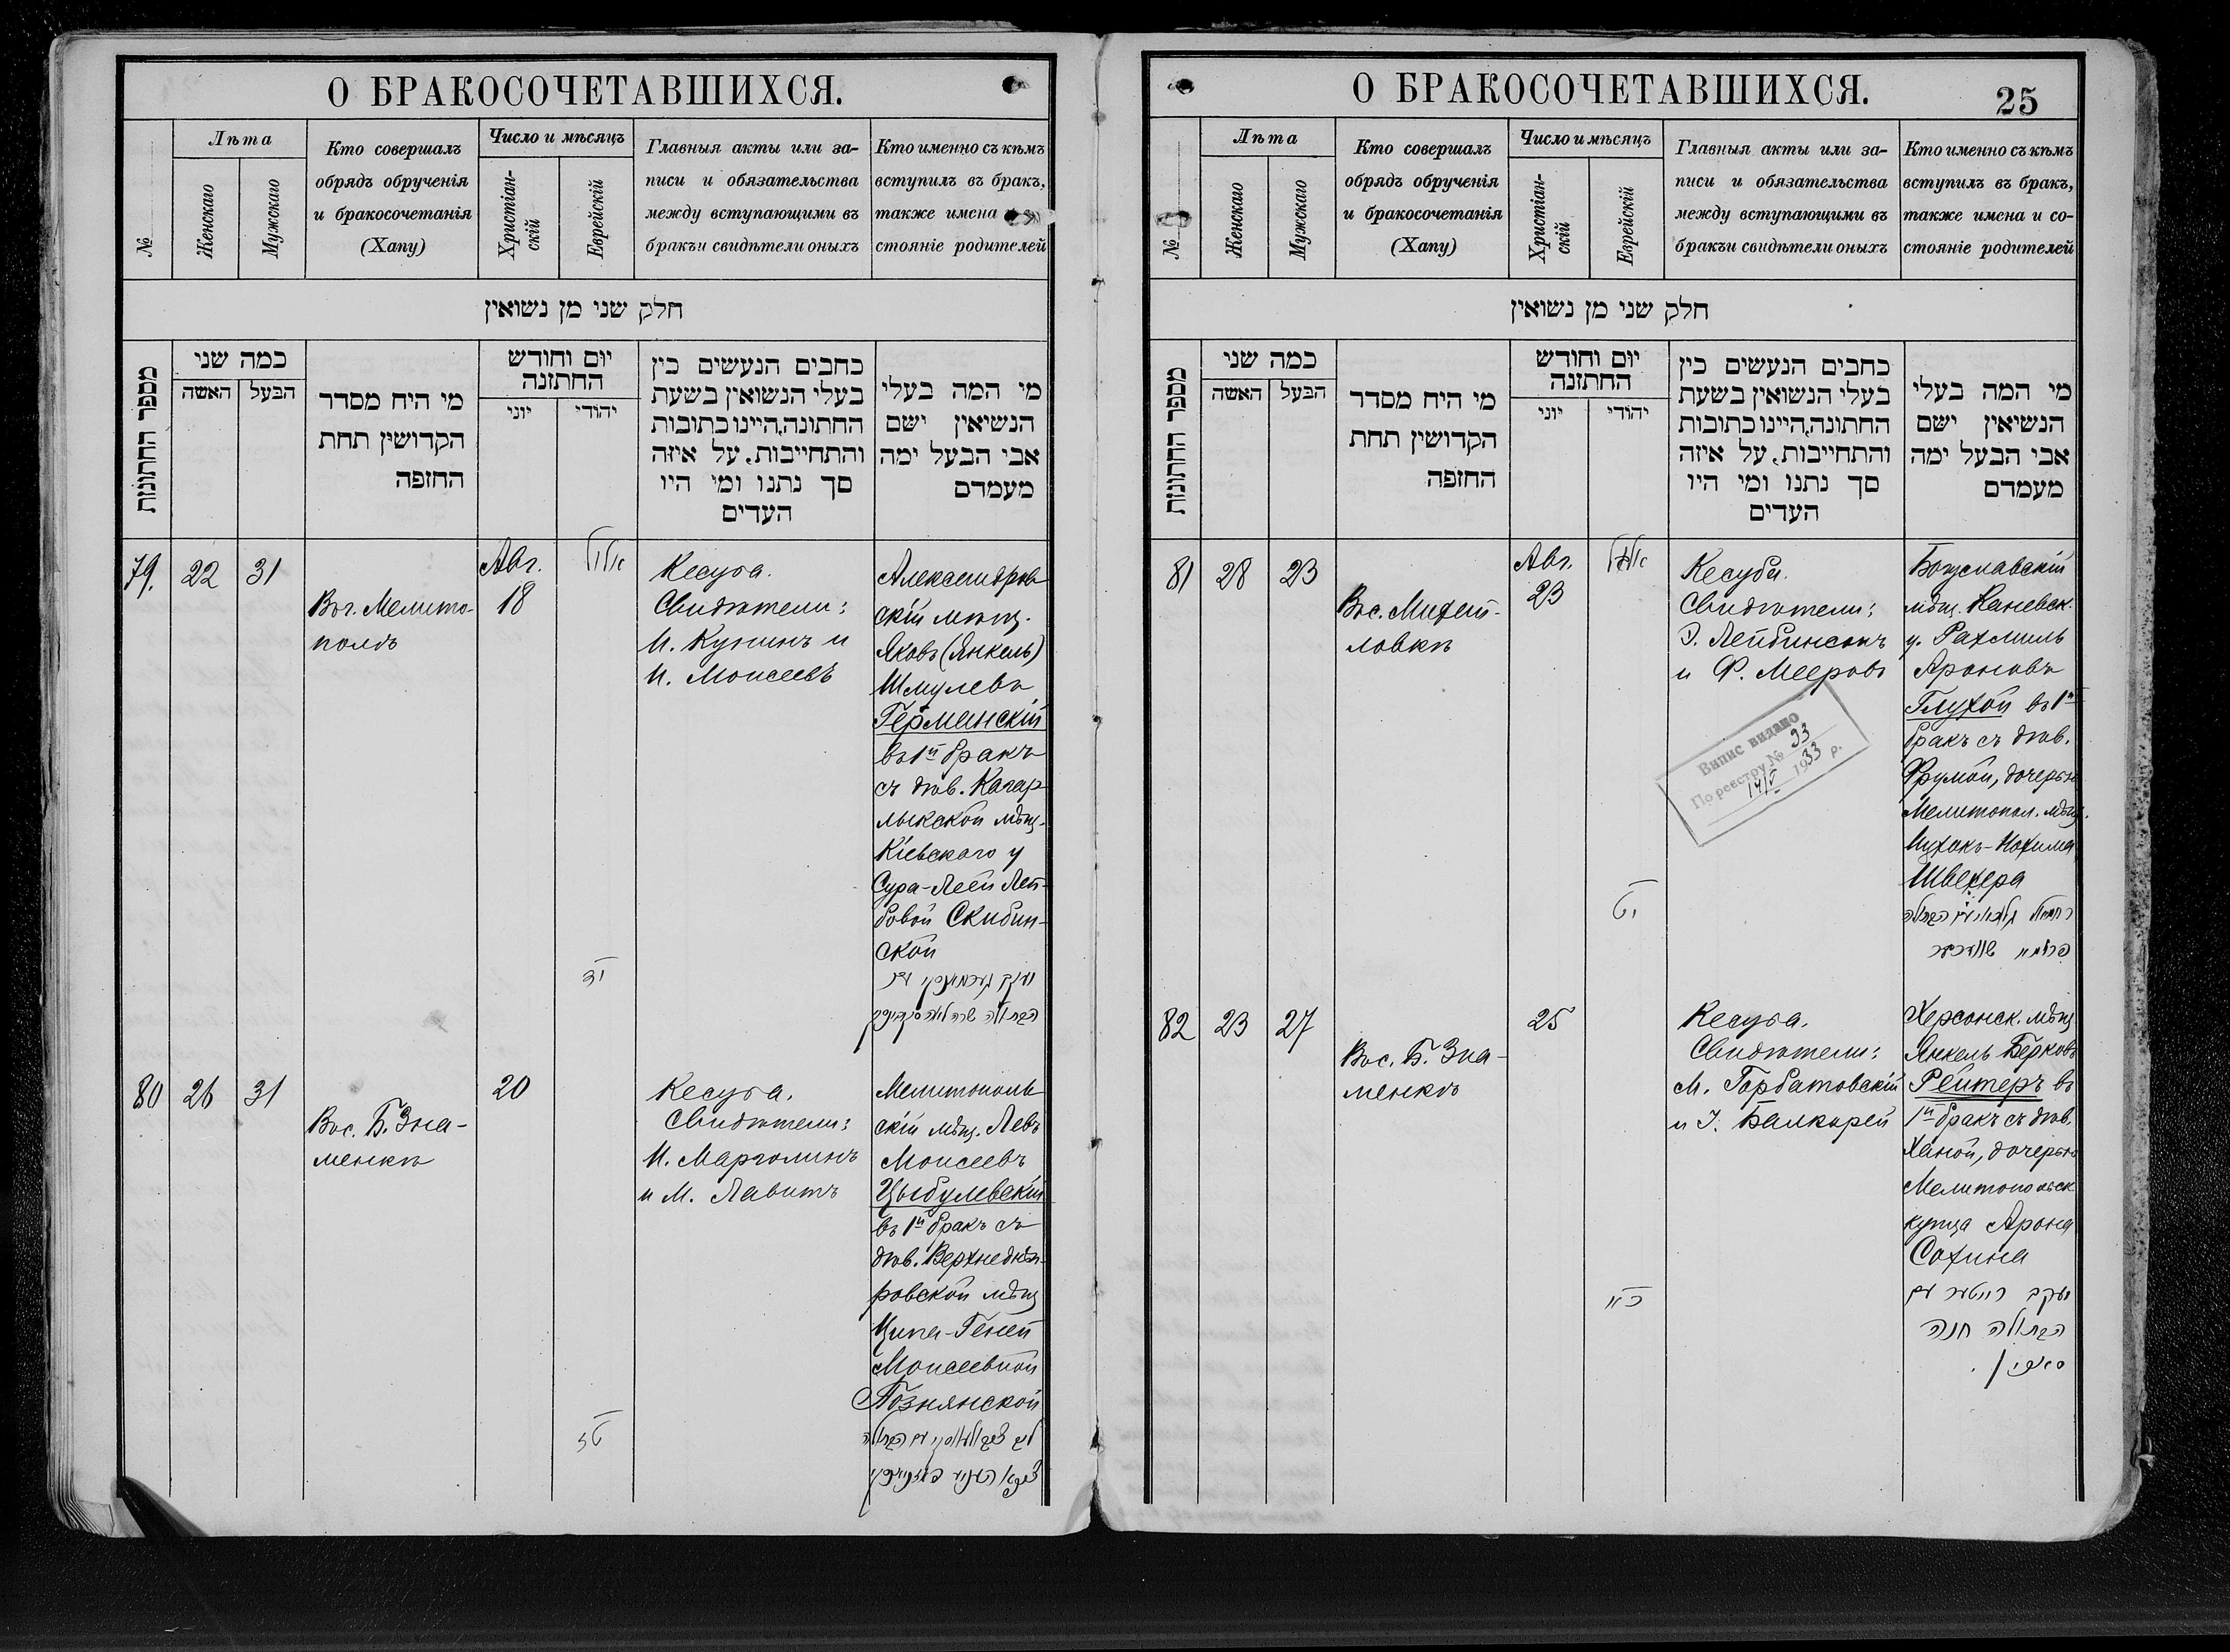 О БРАКОСОЧЕТАВШИХСЯ.
№
Лѣта
Женскаго
Мужскаго
Кто совершалъ
обрядъ обрученія
и бракосочетанія
(Хапу)
Число и мѣсяцъ
Христіан-
скій
Еврейскій
Главныя акты или за-
писи и обязательства
между вступающими въ
бракъи свидѣтели оныхъ
Кто именно съ кѣмъ
вступилъ въ бракъ,
также имена
стояніе родителей
חלק שני מן נשואין
מספר החתונות
כמה שני
האשה
הבעל
מי היח מסדר
הקדושין תחת
החזפה
יום וחודש
החתזנה
יוני
יהודי
כחבים הנעשים כין
בעלי הנשואין בשעת
החתונה,היינו כתובות
והתחייבות, על איזה
סך נתנו ומי היו
העדים
מי המה בעלי
הנשיאין ישם
אבי הבעל ימה
מעמדם
79.
22
31
Въ г. Мелито-
полѣ
Авг.
18
אלול
יד
Кесуба.
Свидѣтели:
И. Кунинъ и
И. Моисеевъ
Александров-
скій мѣщ.
Яковъ (Янкель)
Шмулевъ
Германскій
въ 1й бракъ
съ дѣв. Кагар-
лыкской мѣщ.
Кіевского у
Сура-Леей Лей-
бовой Скибин-
ской
יעקב גערמאנסקי עם
הבתולה שרה לאה סקיבינסקי
80
26
31
Въ с. Б. Зна-
менкѣ
20
טז
Кесуба.
Свидѣтели:
И. Марголинъ
и М. Лавитъ
Мелитополь-
скій мѣщ. Левъ
Моисеевъ
Цыбулевскій
въ 1й бракъ съ
дѣв. Верхнеднѣп-
ровской мѣщ
Ципа-Геней
Моисеевной
Познянской
О БРАКОСОЧЕТАВШИХСЯ.
25
№
Лѣта
Женскаго
Мужскаго
Кто совершалъ
обрядъ обрученія
и бракосочетанія
(Хапу)
Число и мѣсяцъ
Христіан-
скій
Еврейскій
Главныя акты или за-
писи и обязательства
между вступающими въ
бракъи свидѣтели оныхъ
Кто именно съ кѣмъ
вступилъ въ бракъ,
также имена и со-
стояніе родителей
חלק שני מן נשואין
מספר החתונות
כמה שני
האשה
הבעל
מי היח מסדר
הקדושין תחת
החזפה
יום וחודש
החתזנה
יוני
יהודי
כחבים הנעשים כין
בעלי הנשואין בשעת
החתונה,היינו כתובות
והתחייבות, על איזה
סך נתנו ומי היו
העדים
מי המה בעלי
הנשיאין ישם
אבי הבעל ימה
מעמדם
81
28
23
Въ с. Михай-
ловкѣ
Авг.
23
אלול
יט
Кесуба.
Свидѣтели:
Э. Лейбинсонъ
и Ф. Мееровъ
Випис видано
По реестру № 93
14/V 1933 р.
Богуславскій
мѣщ. Каневск.
у. Рахмиль
Ароновъ
Глухой въ 1й
бракъ съ дѣв.
Фрумой, дочерью
Мелитопол. мѣщ.
Ицхокъ-Нохима
Швехера
82
23
27
Въ с. Б. Зна-
менкѣ
25
כא
Кесуба.
Свидѣтели:
М. Горбатовскій
и І. Балкарей
Херсонск. мѣщ
Янкель Берковъ
Рейтеръ въ
1й бракъ съ дѣв.
Ханой, дочерью
Мелитопольск
купца Арона
Сохина
יעקב רייטער עם
הבתולה חנה